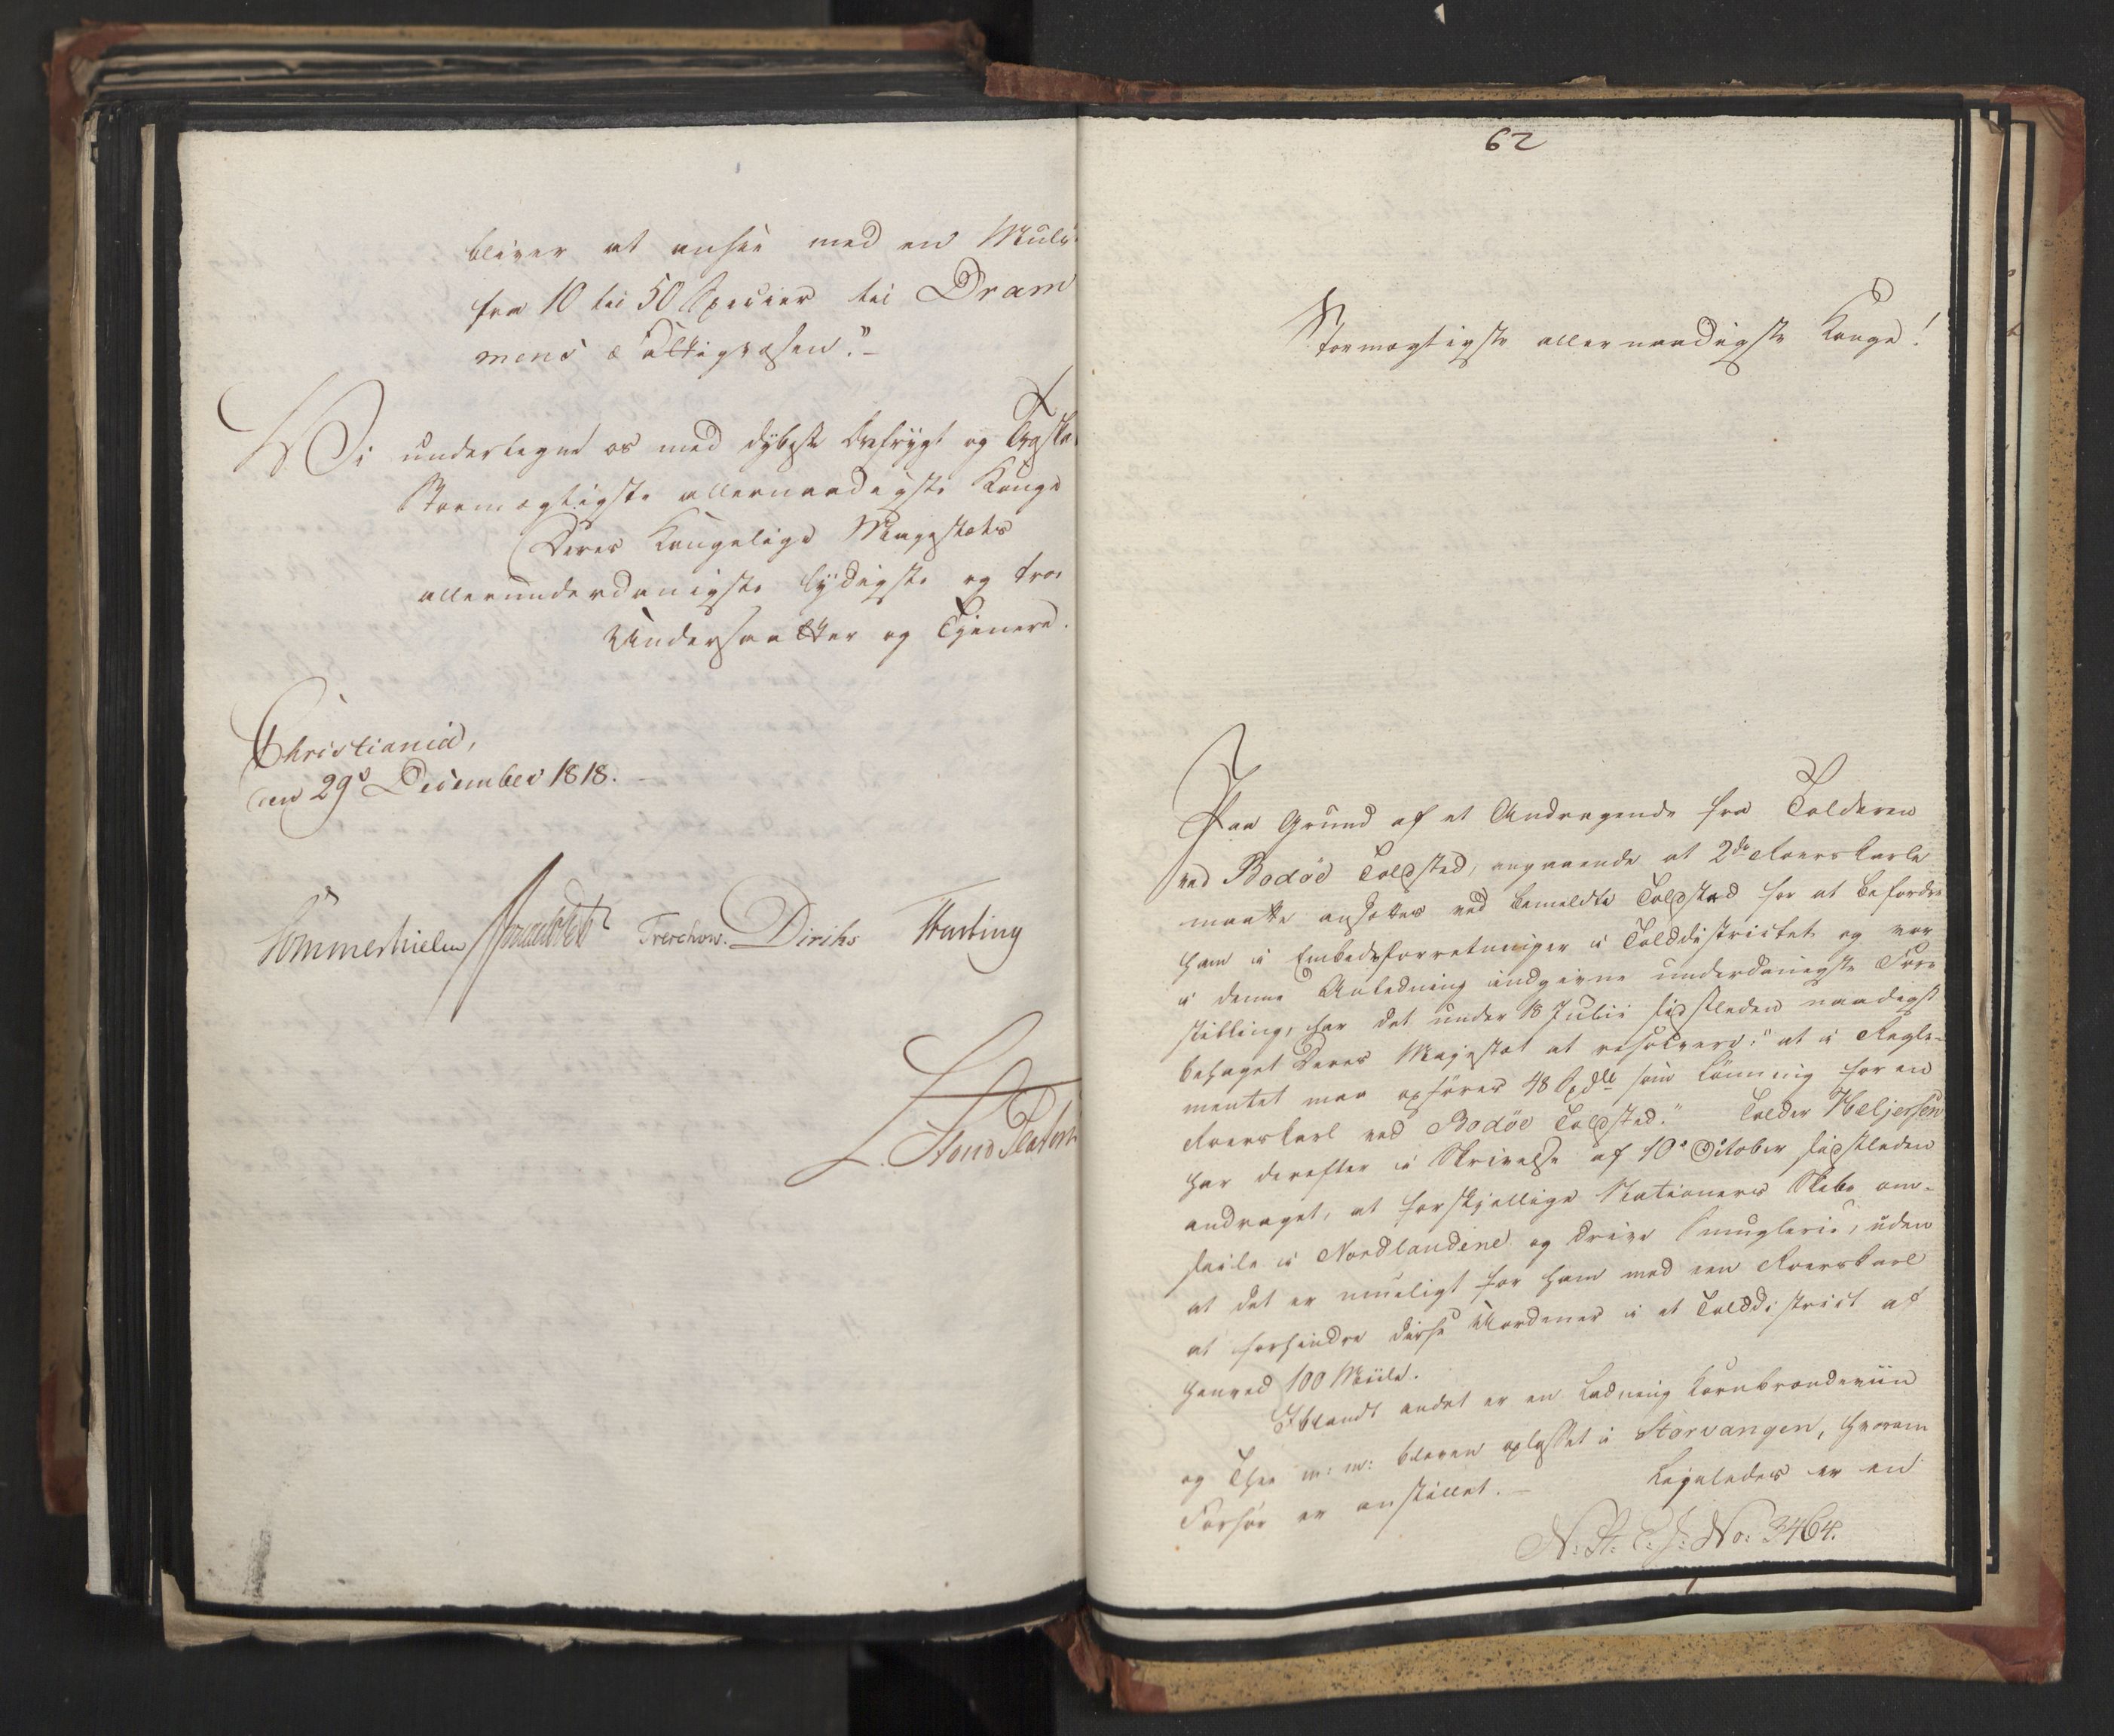 bliver at ansee med en Mulct
fra 10 til 50 Specier til Dram
mens Fattigvæsen."-
Vi undertegne os med dybeste Ærefrygt og Troskab
Stormægtigste allernaadigste Konge
Deres Kongelige Majestæts
allerunderdanigste lydigste og troe
Undersaatter og Tjenere.
Christiania,
den 29de December 1818. -
Sommerhielm Treschow. Diriks Hasting
62
Stormægtigste allernaadigste Konge!
Paa Grund af et Andragende fra Tolderen
ved Bodøe Toldsted, angaaende at 2de Roerskarle
maatte ansættes ved bemeldte Toldsted for at befordre
ham i Embedsforretninger i Tolddistrictet og vor
i denne Anledning indgivne underdanigste Fore
stilling, har det under 18 Julii sidstleden naadigst
behaget Deres Majestæt at resolvere: "at i Regle-
mentet maa opføres 48 Spdlr som Lønning for en
Roerskarl ved Bodøe Toldsted." Tolder Heljersen
har derefter i Skrivelse af 10de October sidstleden
andraget, at forskjellige Nationers Skibe om-
seile i Nordlandene og drive Smuglerie, uden
at det er mueligt for ham med een Roerskarl
at forhindre disse Uordener i et Tolddistrict af
henved 100 Miile.
Iblandt andet er en Ladning Kornbrændeviin
og Thee m: m: bleven oplosset i Storvaagen, hvorom
Forhør er anstillet. - Ligeledes er en
N: St: C: J: No: 3464.